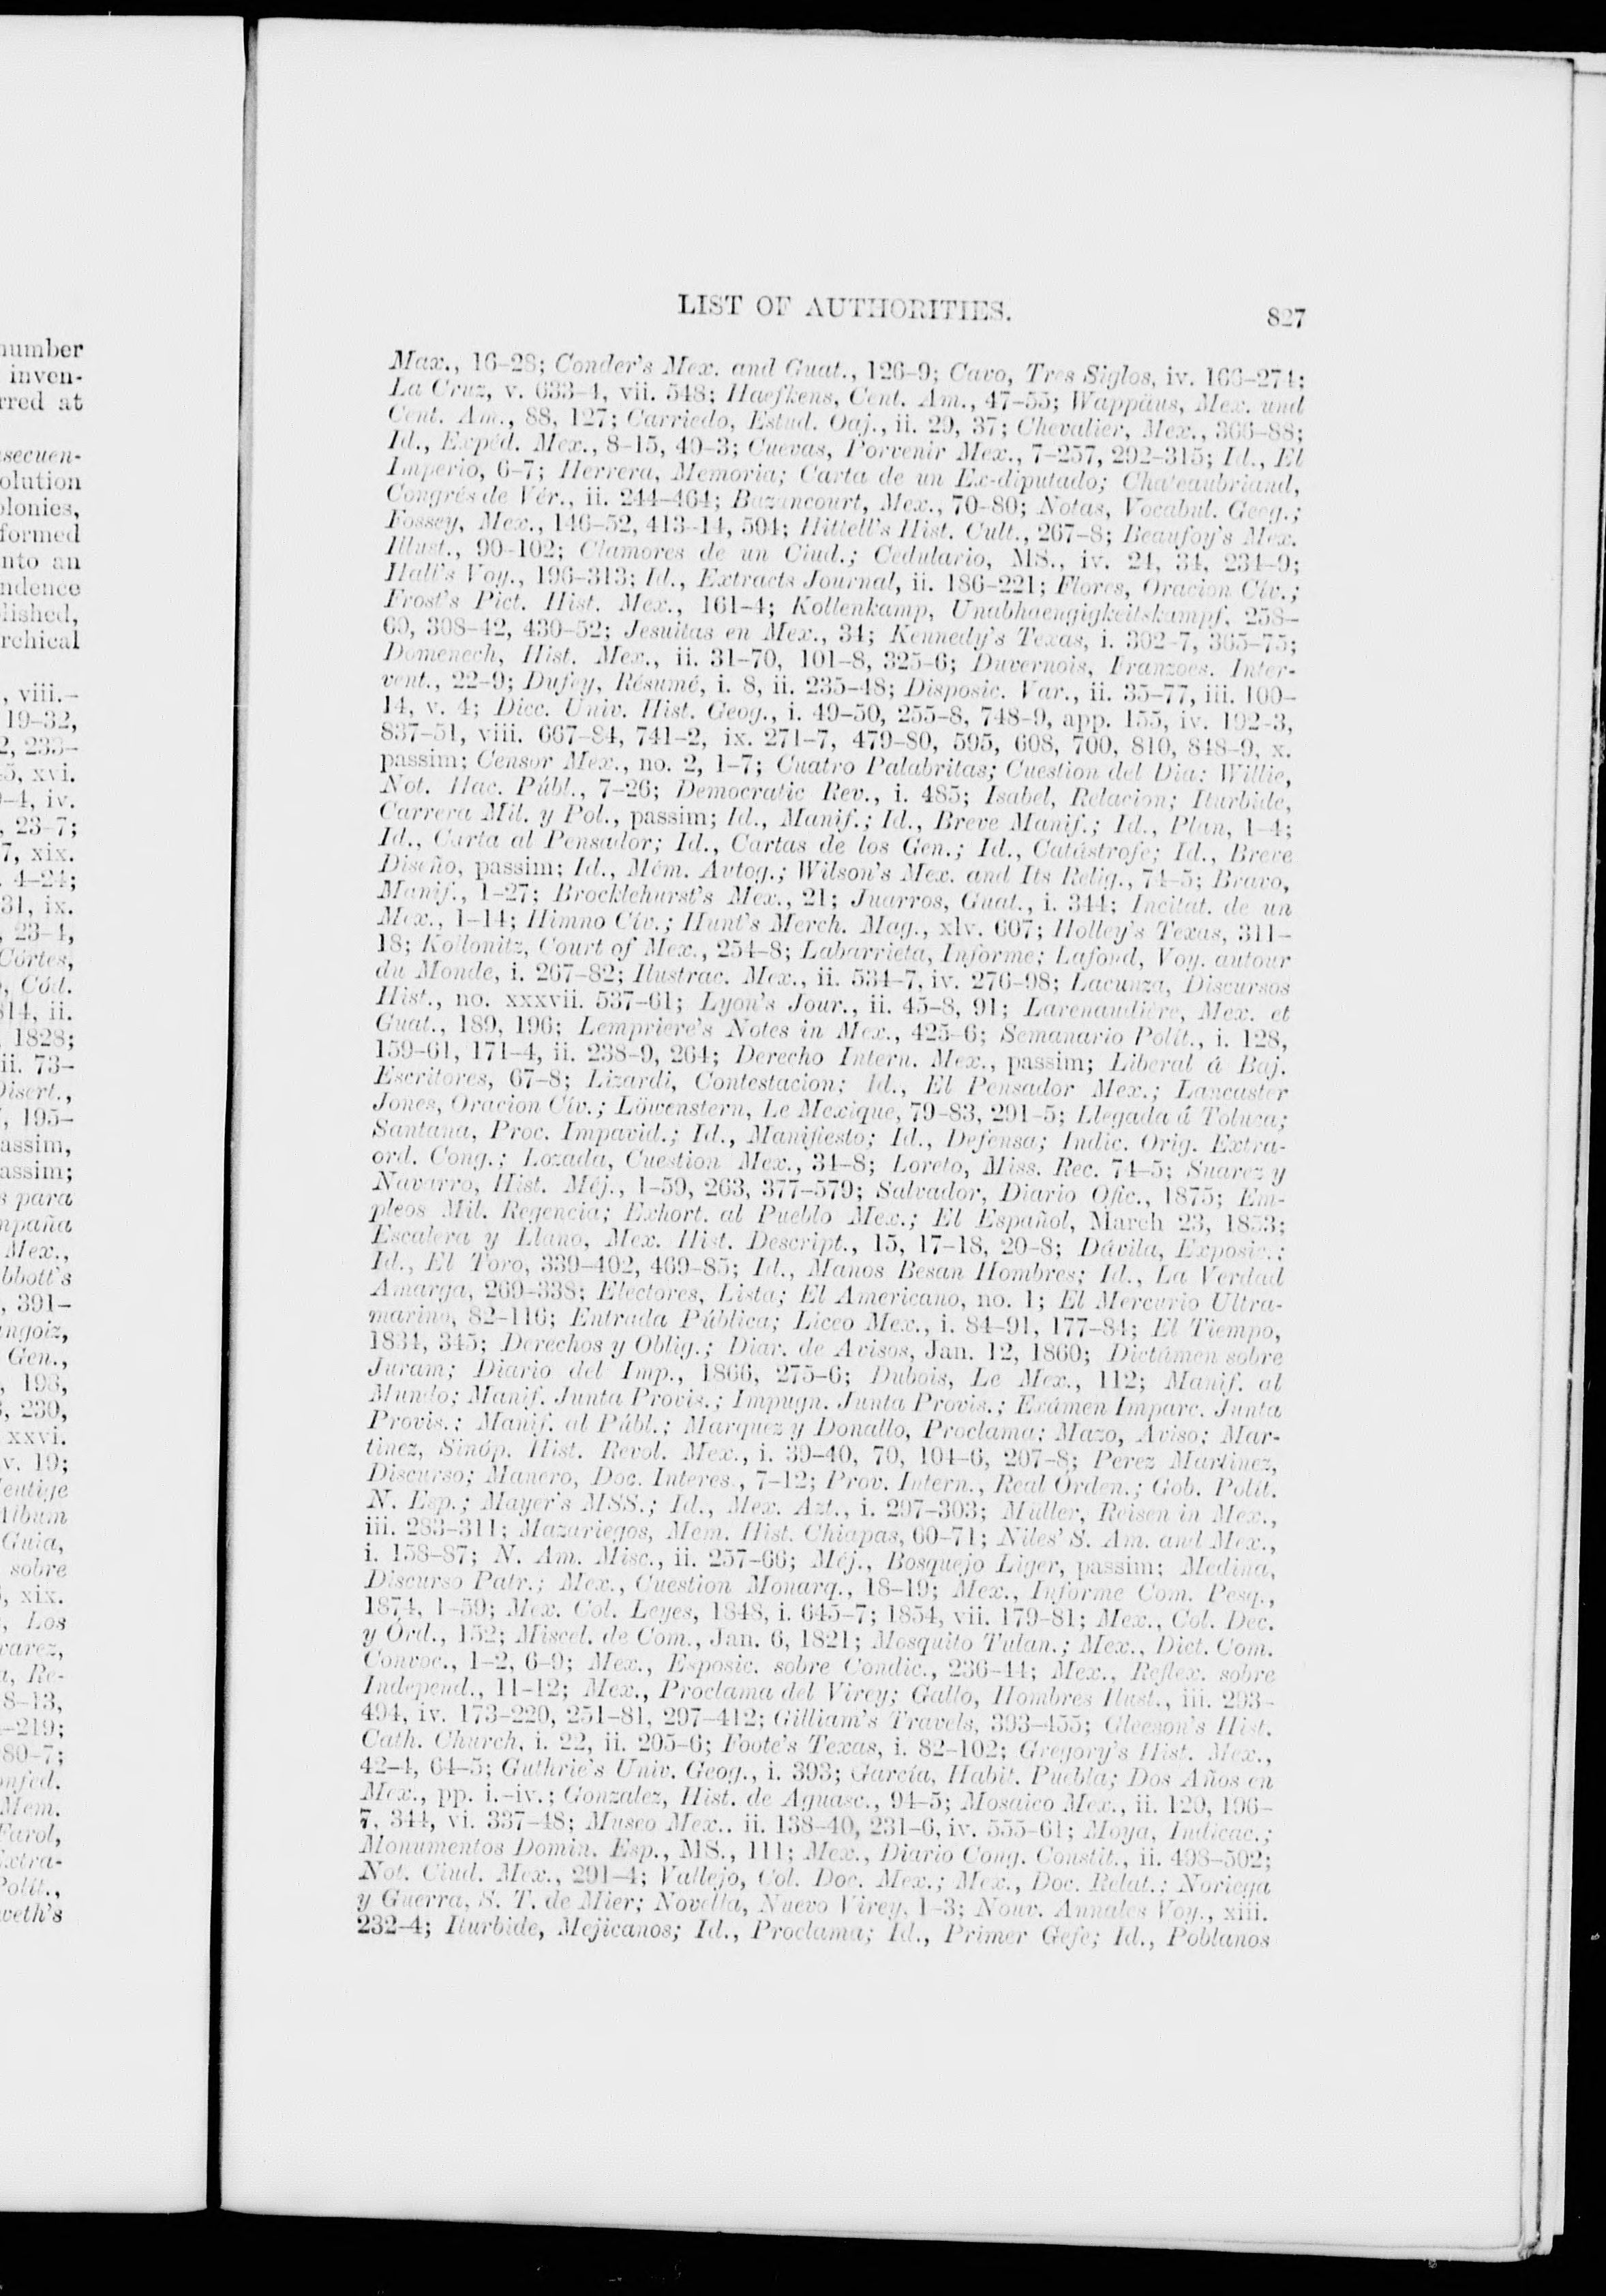 number
inven-
rred at
secuen-
olution
olonies,
formed
nto an
ndence
lished,
rchical
, viii.–
19–32,
2, 233–
5, xvi.
–4, iv.
, 23–7;
7, xix.
. 4–24;
31, ix.
, 23–4,
Córtes,
, Cód.
814, ii.
1828;
ii. 73–
Disert.,
, 195–
assim,
assim;
s para
mpaña
Mex.,
bbott's
, 391–
ngoiz,
Gen.,
, 198,
, 230,
xxvi.
v. 19;
eutige
Album
Guia,
sobre
, xix.
, Los
varez,
a, Re-
8–13,
–219;
80–7;
onfed.
Mem.
Farol,
Extra-
Polít.,
weth's
LIST OF AUTHORITIES.
827
Max., 16–28; Conder's Mex. and Guat., 126–9; Cavo, Tres Siglos, iv. 166–274;
La Cruz, v. 633–4, vii. 548; Haefkens, Cent. Am., 47–55; Wappäus, Mex. und
Cent. Am., 88, 127; Carriedo, Estud. Oaj., ii. 29, 37; Chevalier, Mex., 366–88;
Id., Expéd. Mex., 8–15, 40–3; Cuevas, Porvenir Mex., 7–257, 292–315; Id., El
Imperio, 6–7; Herrera, Memoria; Carta de un Ex-diputado; Chateaubriand,
Congrés de Vér., ii. 244–464; Bazancourt, Mex., 70–80; Notas, Vocabul. Geog.;
Fossey, Mex., 146–52, 413–14, 504; Hittell's Hist. Cult., 267–8; Beaufoy's Mex.
Illust., 90–102; Clamores de un Ciud.; Cedulario, MS., iv. 24, 34, 234–9;
Hall's Voy., 196–313; Id., Extracts Journal, ii. 186–221; Flores, Oracion Cív.;
Frost's Pict. Hist. Mex., 161–4; Kollenkamp, Unabhaengigkeitskampf, 258–
60, 308–42, 430–52; Jesuitas en Mex., 34; Kennedy's Texas, i. 302–7, 365–75;
Domenech, Hist. Mex., ii. 31–70, 101–8, 325–6; Duvernois, Franzoes. Inter-
vent., 22–9; Dufey, Résumé, i. 8, ii. 235–48; Disposic. Var., ii. 35–77, iii. 100–
14, v. 4; Dicc. Univ. Hist. Geog., i. 49–50, 255–8, 748–9, app. 155, iv. 192–3,
837–51, viii. 667–84, 741–2, ix. 271–7, 479–80, 595, 608, 700, 810, 848–9, x.
passim; Censor Mex., no. 2, 1–7; Cuatro Palabritas; Cuestion del Dia; Willie,
Not. Hac. Públ., 7–26; Democratic Rev., i. 485; Isabel, Relacion; Iturbide,
Carrera Mil. y Pol., passim; Id., Manif.; Id., Breve Manif.; Id., Plan, 1–4;
Id., Carta al Pensador; Id., Cartas de los Gen.; Id., Catástrofe; Id., Breve
Diseño, passim; Id., Mém. Avtog.; Wilson's Mex. and Its Relig., 74–5; Bravo,
Manif., 1–27; Brocklehurst's Mex., 21; Juarros, Guat., i. 344; Incitat. de un
Mex., 1–14; Himno Cív.; Hunt's Merch. Mag., xlv. 607; Holley's Texas, 311–
18; Kollonitz, Court of Mex., 254–8; Labarrieta, Informe; Lafond, Voy. autour
du Monde, i. 267–82; Ilustrac. Mex., ii. 534–7, iv. 276–98; Lacunza, Discursos
Hist., no. xxxvii. 537–61; Lyon's Jour., ii. 45–8, 91; Larenaudière, Mex. et
Guat., 189, 196; Lempriere's Notes in Mex., 425–6; Semanario Polít., i. 128,
159–61, 171–4, ii. 238–9, 264; Derecho Intern. Mex., passim; Liberal á Baj.
Escritores, 67–8; Lizardi, Contestacion; Id., El Pensador Mex.; Lancaster
Jones, Oracion Cív.; Löwenstern, Le Mexique, 79–83, 291–5; Llegada á Toluca;
Santana, Proc. Impavid.; Id., Manifiesto; Id., Defensa; Indic. Orig. Extra-
ord. Cong.; Lozada, Cuestion Mex., 34–8; Loreto, Miss. Rec. 74–5; Suarez y
Navarro, Hist. Méj., 1–59, 263, 377–579; Salvador, Diario Ofic., 1875; Em-
pleos Mil. Regencia; Exhort. al Pueblo Mex.; El Español, March 23, 1853;
Escalera y Llano, Mex. Hist. Descript., 15, 17–18, 20–8; Dávila, Exposic.;
Id., El Toro, 339–402, 469–85; Id., Manos Besan Hombres; Id., La Verdad
Amarga, 269–338; Electores, Lista; El Americano, no. 1; El Mercurio Ultra-
marino, 82–116; Entrada Pública; Liceo Mex., i. 84–91, 177–84; El Tiempo,
1834, 345; Derechos y Oblig.; Diar. de Avisos, Jan. 12, 1860; Dictámen sobre
Juram; Diario del Imp., 1866, 275–6; Dubois, Le Mex., 112; Manif. al
Mundo; Manif. Junta Provis.; Impugn. Junta Provis.; Exámen Imparc. Junta
Provis.; Manif. al Públ.; Marquez y Donallo, Proclama; Mazo, Aviso; Mar-
tinez, Sinóp. Hist. Revol. Mex., i. 39–40, 70, 104–6, 207–8; Perez Martinez,
Discurso; Manero, Doc. Interes., 7–12; Prov. Intern., Real Órden.; Gob. Polít.
N. Esp.; Mayer's MSS.; Id., Mex. Azt., i. 297–303; Müller, Reisen in Mex.,
iii. 283–311; Mazariegos, Mem. Hist. Chiapas, 60–71; Niles' S. Am. and Mex.,
i. 158–87; N. Am. Misc., ii. 257–66; Méj., Bosquejo Liger, passim; Medina,
Discurso Patr.; Mex., Cuestion Monarq., 18–19; Mex., Informe Com. Pesq.,
1874, 1–59; Mex. Col. Leyes, 1848, i. 645–7; 1854, vii. 179–81; Mex., Col. Dec.
y Órd., 152; Miscel. de Com., Jan. 6, 1821; Mosquito Tulan.; Mex., Dict. Com.
Convoc., 1–2, 6–9; Mex., Esposic. sobre Condic., 236–44; Mex., Reflex. sobre
Independ., 11–12; Mex., Proclama del Virey; Gallo, Hombres Ilust., iii. 293–
494, iv. 173–220, 251–81, 297–412; Gilliam's Travels, 393–455; Gleeson's Hist.
Cath. Church, i. 22, ii. 205–6; Foote's Texas, i. 82–102; Gregory's Hist. Mex.,
42–4, 64–5; Guthrie's Univ. Geog., i. 393; García, Habit. Puebla; Dos Años en
Mex., pp. i.–iv.; Gonzalez, Hist. de Aguasc., 94–5; Mosaico Mex., ii. 120, 196–
7, 344, vi. 337–48; Museo Mex.. ii. 138–40, 231–6, iv. 555–61; Moya, Indicac.;
Monumentos Domin. Esp., MS., 111; Mex., Diario Cong. Constit., ii. 498–502;
Not. Ciud. Mex., 291–4; Vallejo, Col. Doc. Mex.; Mex., Doc. Relat.; Noriega
y Guerra, S. T. de Mier; Novella, Nuevo Virey, 1–3; Nouv. Annales Voy., xiii.
232–4; Iturbide, Mejicanos; Id., Proclama; Id., Primer Gefe; Id., Poblanos